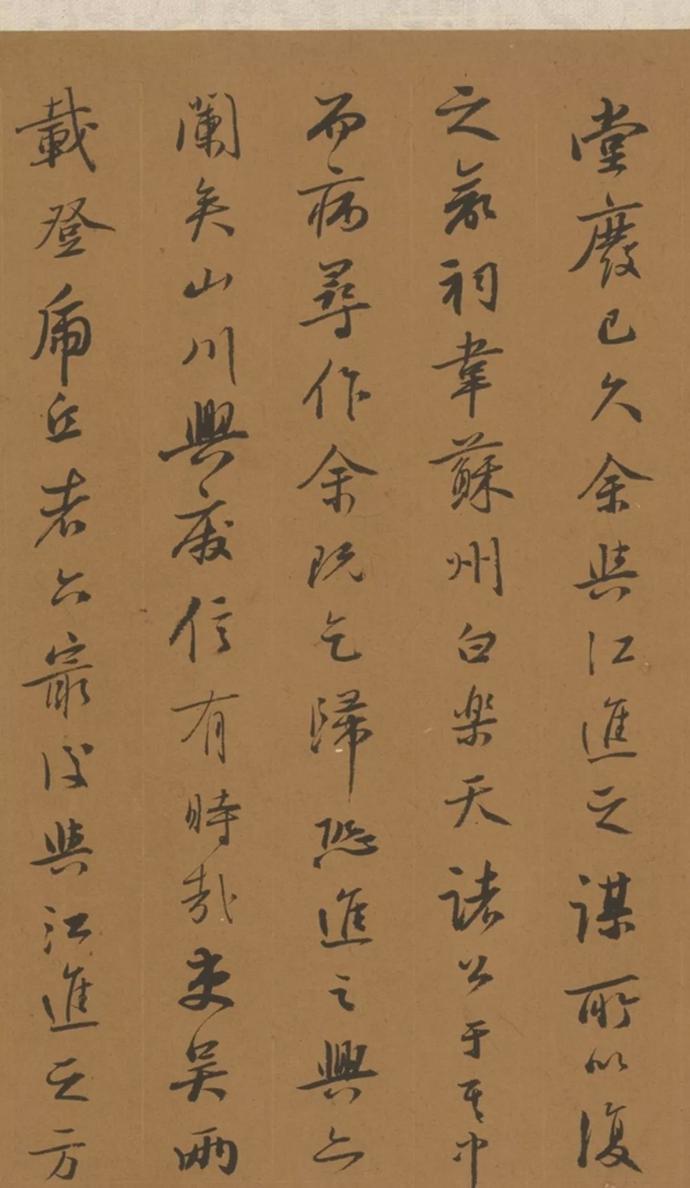 堂廢已久余與江進之謀所以復
之欲祠韋蘇州白楽天諸公于其中
而病尋作余既乞歸恐進之興亦
闌矣山川興廢信有時哉吏吴兩
載登虎丘者六最後與江進之方